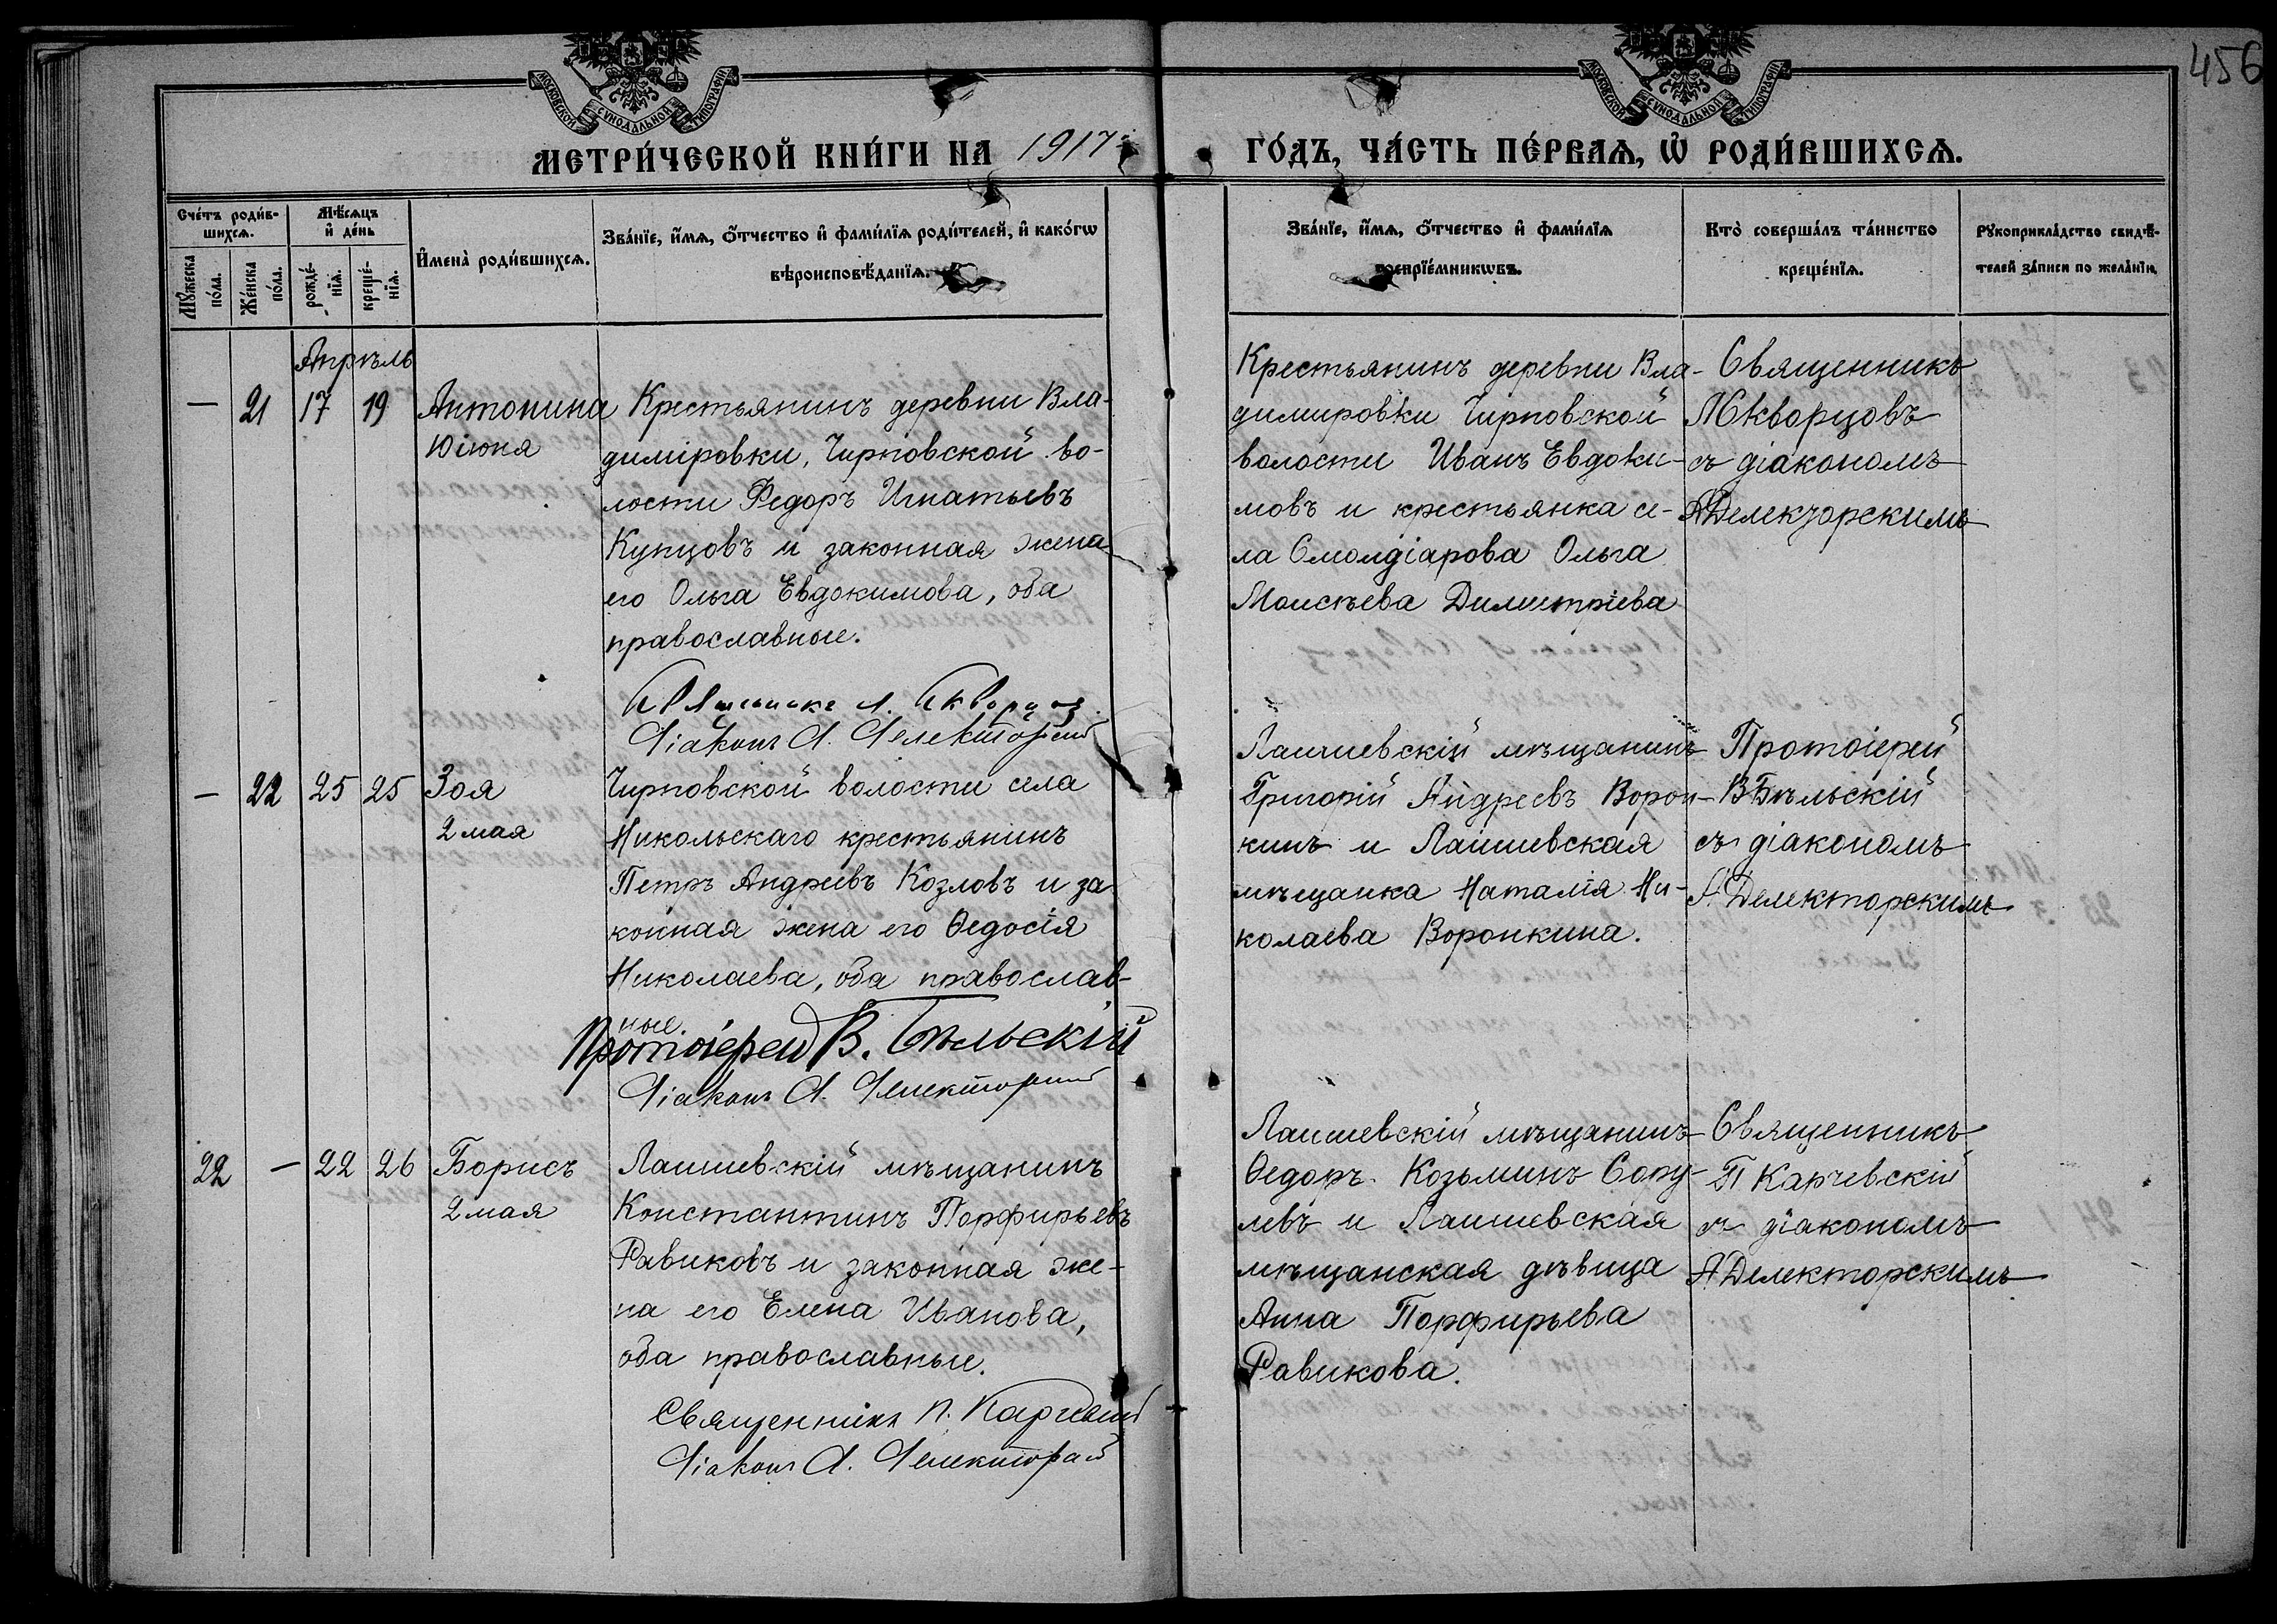 456
МОСКОВСКОЙ СѴНОДАЛЬНОЙ ТИПОГРАФІИ
МОСКОВСКОЙ СѴНОДАЛЬНОЙ ТИПОГРАФІИ
МЕТРИ́ЧЕСКОЙ КНИ́ГИ НА 1917
ГО́ДЪ, ЧА́СТЬ ПЕ́РВАѦ, Ѡ҆ РОДИ́ВШИХСѦ.
Сче́тъ роди́в-
шихсѧ.
Мꙋ́жеска
по́ла.
Же́нска
по́ла.
Мѣ́сѧцъ
и҆ де́нь
рожде́-
нїѧ.
креще́-
нїѧ.
И҆мена̀ роди́вшихсѧ.
Зва́нїе, и҆́мѧ, ѻ҆́тчество и҆ фами́лїѧ роди́телей, и҆ како́гѡ
вѣроисповѣ́данїѧ.
Зва́нїе, и҆́мѧ, ѻ҆́тчество и҆ фами́лїѧ
воспрїе́мникѡвъ.
Кто̀ соверша́лъ та́инство
креще́нїѧ.
Рꙋкоприкла́дство свидѣ́-
телей за́писи по жела́нїю.
Апрѣль
— 21 17 19 Антонина
10 іюня
Крестьянинъ деревни Вла-
диміровки, Чирповской во-
лости Федоръ Игнатьевъ
Купцовъ и законная жена
его Ольга Евдокимова, оба
православные.
А. Скворцов
Діаконъ А. Делекторскій
Крестьянинъ деревни Вла-
димировки Чирповской
волости Иванъ Евдоки-
мовъ и крестьянка се-
ла Смолдіарова Ольга
Моисѣева Димитріева
Священникъ
А Скворцовъ
съ діакономъ
А Делекторскимъ
— 22 25 25 Зоя
2 мая
Чирповской волости села
Никольскаго крестьянинъ
Петръ Андреевъ Козловъ и за-
конная жена его Ѳедосія
Николаева, оба православ-
ные.
Протоіерей В. Бѣльскій
Діаконъ А. Делекторскій
Лаишевскій мѣщанинъ
Григорій Андреевъ Ворон-
кинъ и Лаишевская
мѣщанка Наталія Ни-
колаева Воронкина.
Протоіерей
В Бѣльскій
съ діакономъ
А Делекторскимъ
22 — 22 26 Борисъ
2 мая
Лаишевскій мѣщанинъ
Константинъ Порфирьевъ
Равиковъ и законная же-
на его Елена Иванова,
оба православные.
Священникъ П. Карчевскій
Діаконъ А. Делекторскій
Лаишевскій мѣщанинъ
Ѳедоръ Козьминъ
и Лаишевская
мѣщанская дѣвица
Анна Порфирьева
Равикова.
Священникъ
П Карчевскій
съ діакономъ
А Делекторскимъ